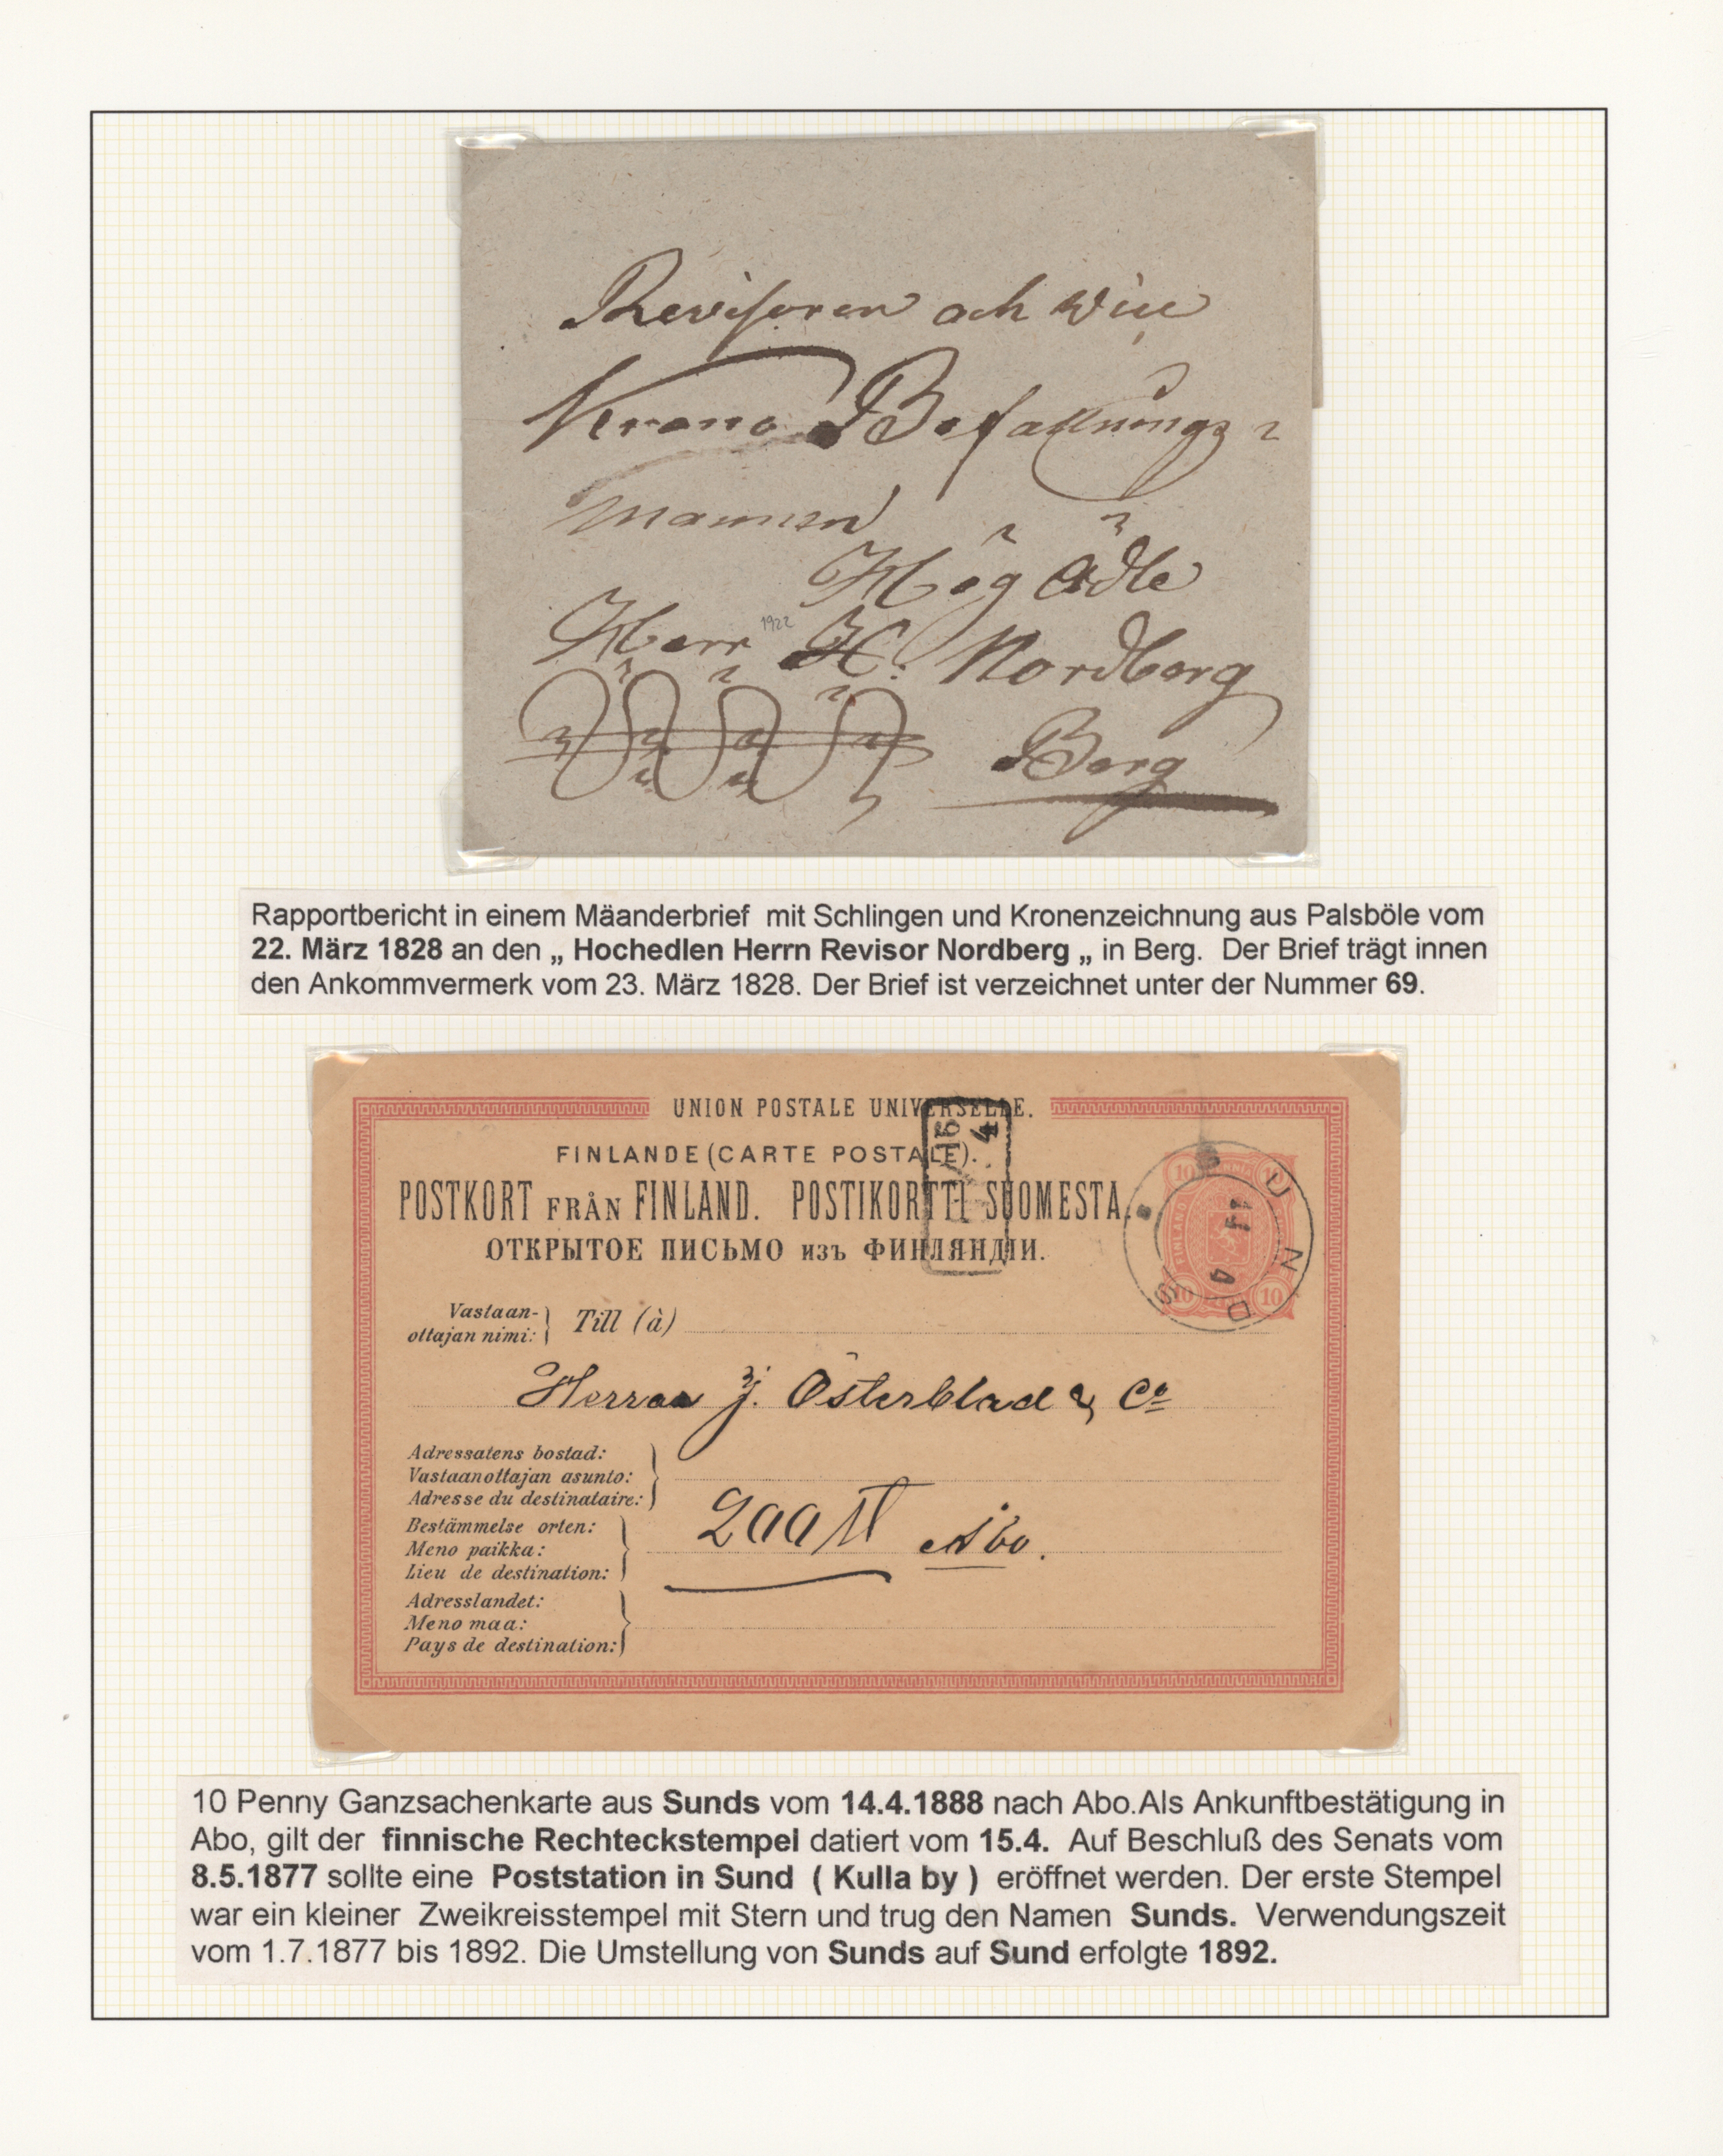 Revisoren och Vice
Krono Befallnings
mannen
Hög Ädle
Herr H. Nordberg
1922
Berg
Rapportbericht in einem Mäanderbrief mit Schlingen und Kronenzeichnung aus Palsböle vom
22. März 1828 an den „ Hochedlen Herrn Revisor Nordberg „ in Berg. Der Brief trägt innen
den Ankommvermerk vom 23. März 1828. Der Brief ist verzeichnet unter der Nummer 69.
UNION POSTALE UNIVERSELLE.
FINLANDE (CARTE POSTALE).
POSTKORT FRÅN FINLAND. POSTIKORTTI SUOMESTA.
ОТКРЫТОЕ ПИСЬМО изъ ФИНЛЯНДІИ.
15 4
SUNDS
14 4
FINLAND
10 10
10 10
Vastaan-
ottajan nimi: Till (à)
Herrar J. Österblad & Co
Adressatens bostad:
Vastaanottajan asunto:
Adresse du destinataire:
Bestämmelse orten:
Meno paikka: Åbo.
Lieu de destination:
Adresslandet:
Meno maa:
Pays de destination:
10 Penny Ganzsachenkarte aus Sunds vom 14.4.1888 nach Abo.Als Ankunftbestätigung in
Abo, gilt der finnische Rechteckstempel datiert vom 15.4. Auf Beschluß des Senats vom
8.5.1877 sollte eine Poststation in Sund ( Kulla by ) eröffnet werden. Der erste Stempel
war ein kleiner Zweikreisstempel mit Stern und trug den Namen Sunds. Verwendungszeit
vom 1.7.1877 bis 1892. Die Umstellung von Sunds auf Sund erfolgte 1892.